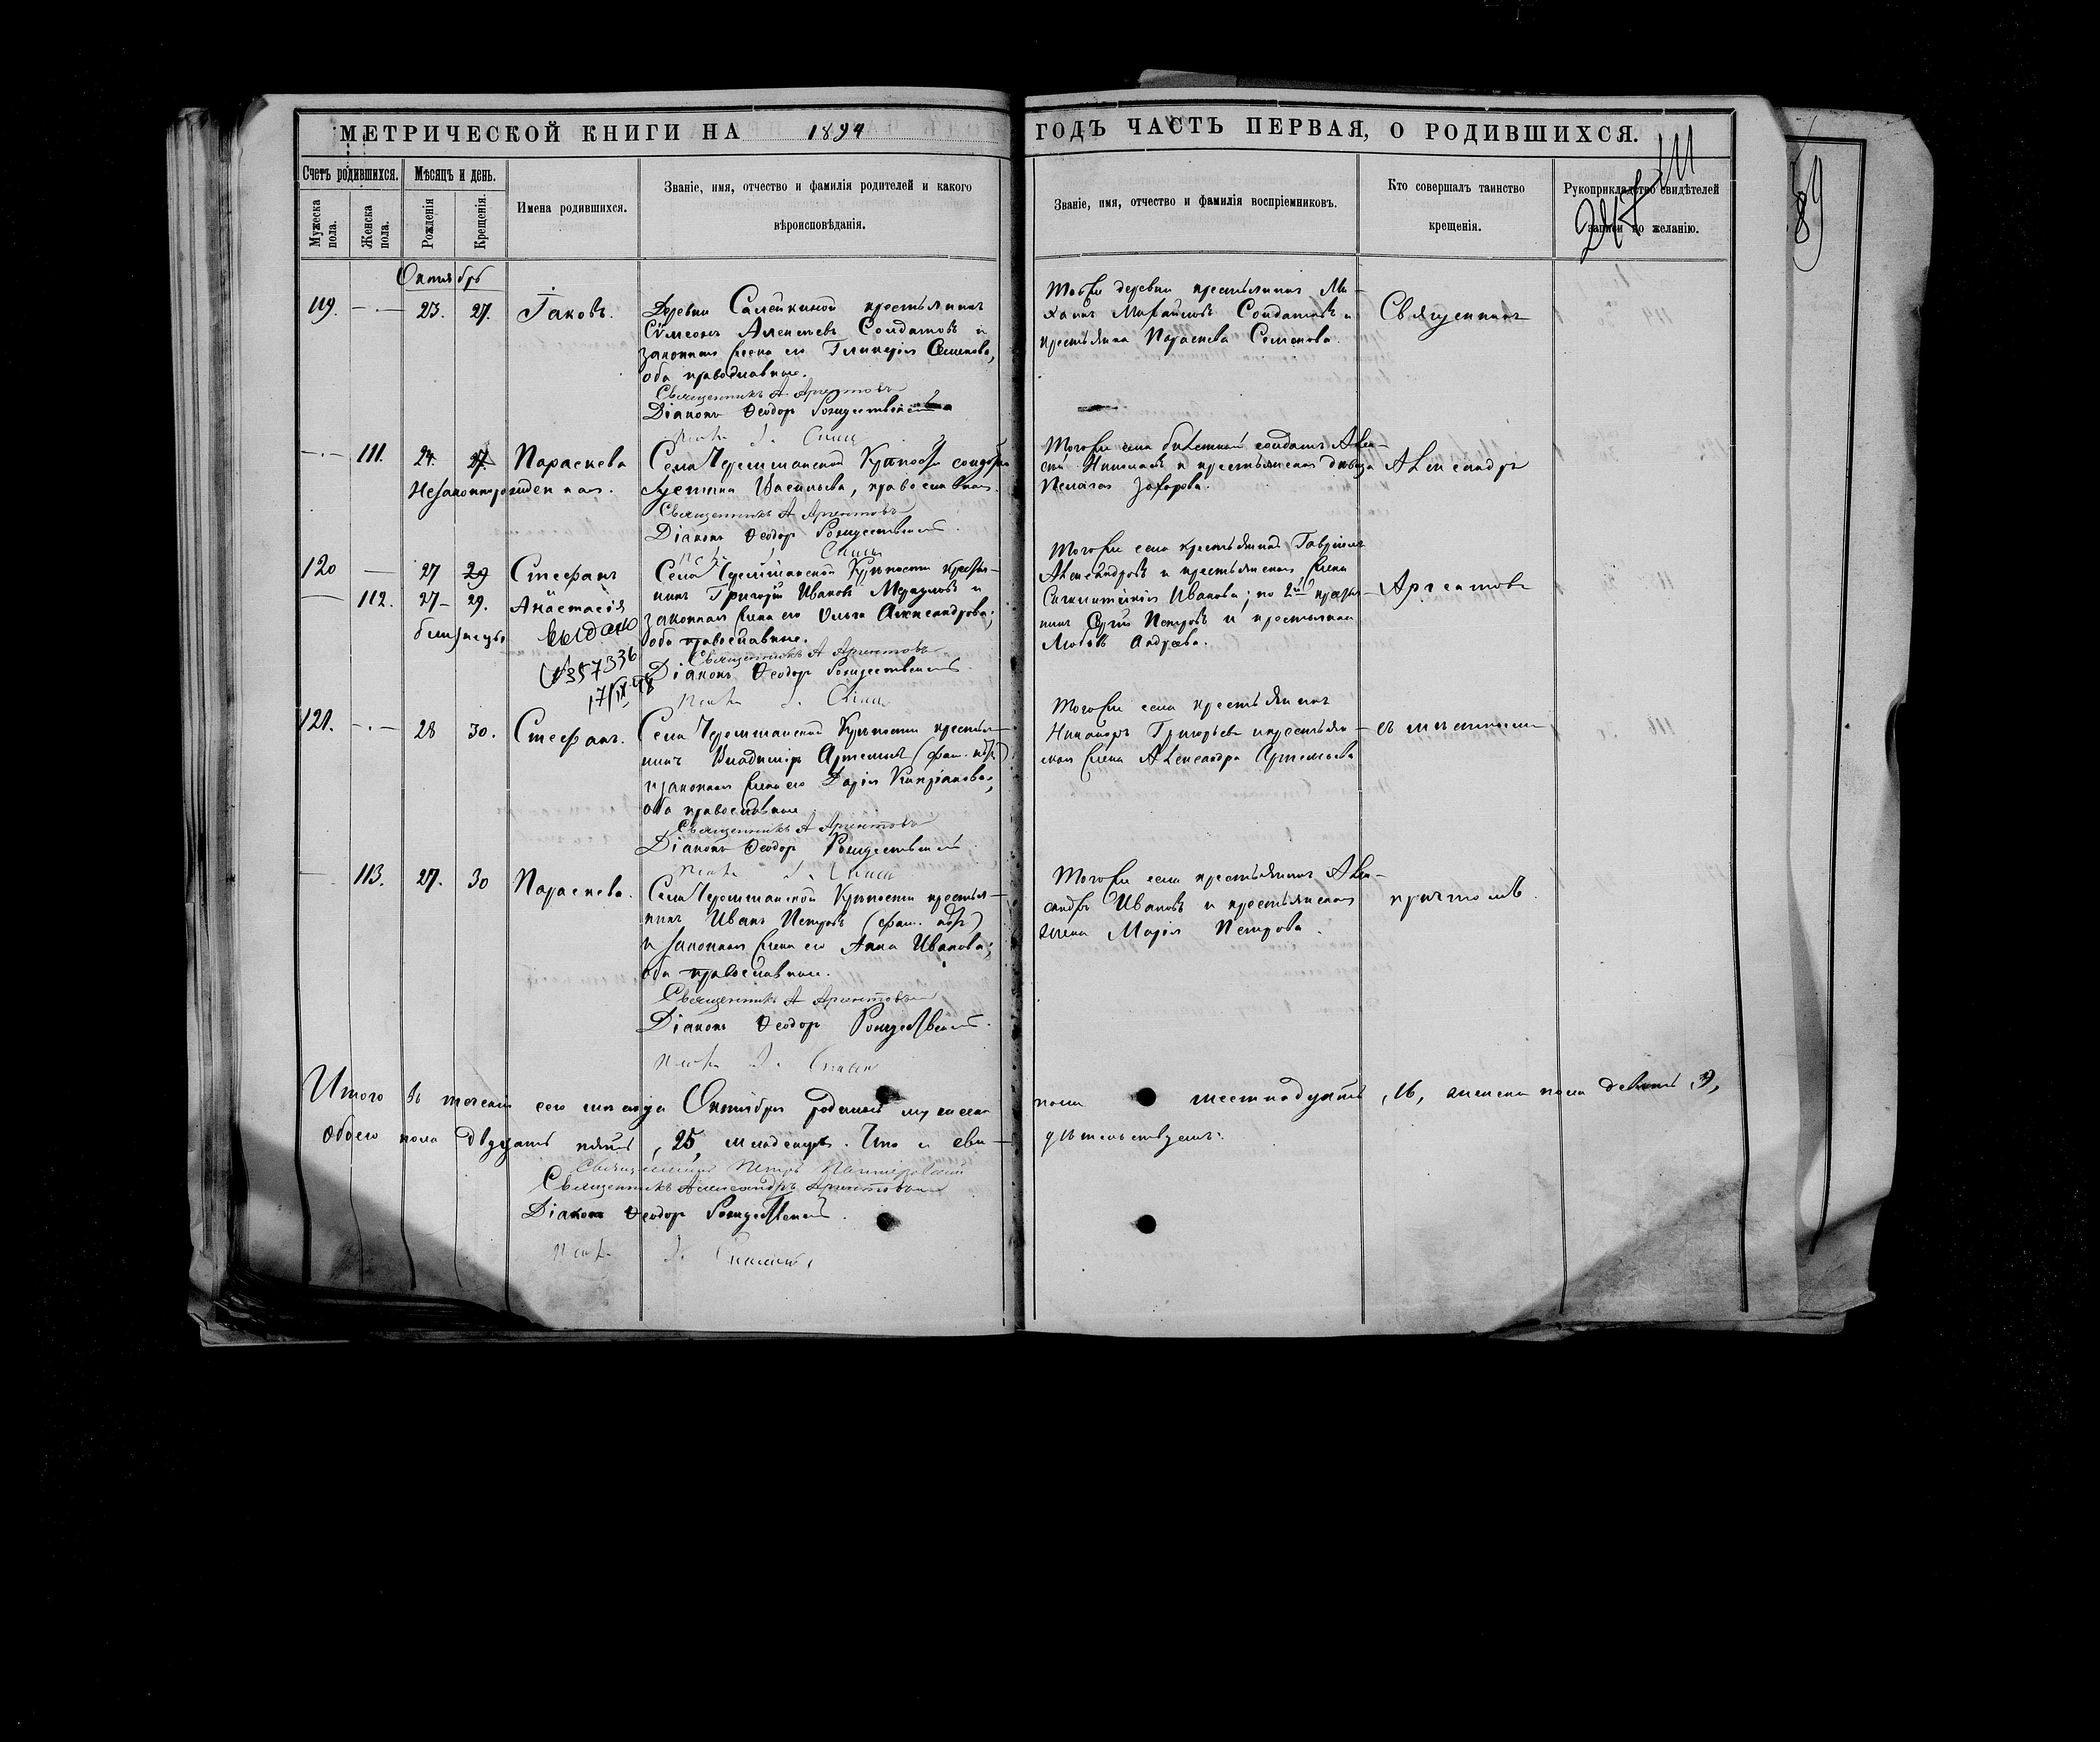 МЕТРИЧЕСКОЙ КНИГИ НА 1894
ГОДЪ ЧАСТЬ ПЕРВАЯ, О РОДИВШИХСЯ.
111
247
89
Счетъ родившихся.
Мужеска пола.
Женска пола.
Мѣсяцъ и день.
Рожденія
Крещенія.
Имена родившихся.
Званіе, имя, отчество и фамилія родителей и какого
вѣроисповѣданія.
Званіе, имя, отчество и фамилія воспріемниковъ.
Кто совершалъ таинство
крещенія.
Рукоприкладство свидѣтелей
записи по желанію.
Октябрь
119. 23. 27. Іаковъ.
Деревни крестьянинъ
Сѵмеонъ Алексѣевъ Солдатовъ и
законная жена его Гликерія Семенова,
оба православные.
Священникъ А Аргентовъ
Діаконъ Ѳеодоръ Рождественскій
Тойже деревни крестьянинъ Ми-
хаилъ Михайловъ Солдатовъ и
крестьянка Параскева Семенова.
Священникъ
111. 24. 27. Параскева
Незаконнорожденная.
Села Черемшанской Крѣпости
Васильева, православная.
Священникъ А Аргентовъ
Діаконъ Ѳеодоръ Рождественскій
Тогоже села билетный солдатъ Алек-
сѣй Николаевъ и крестьянская дѣвица
Пелагія Захарова.
Александръ
120 27 29 Стефанъ
112. 27- 29. Анастасія
близнецы
выдано
357336
17/IX 48
Села Черемшанской Крѣпости крестья-
нинъ Григорій Ивановъ и
законная жена его Ольга Александрова;
оба православные.
Священникъ А Аргентовъ
Діаконъ Ѳеодоръ Рождественскій
Тогоже села крестьянинъ Гавріилъ
Александровъ и крестьянская жена
Иванова; по 2й крестья-
нинъ Петровъ и крестьянка
Любовь Андреева.
Аргентовъ
121. 28 30. Стефанъ.
Села Черемшанской Крѣпости крестья-
нинъ Владиміръ Артемьевъ
и законная жена его Дарія Кипріанова,
оба православные.
Священникъ А Аргентовъ
Діаконъ Ѳеодоръ Рождественскій
Тогоже села крестьянинъ
Никаноръ Григорьевъ и крестьян-
ская жена Александра Артемьева
съ мѣстнымъ
113. 27. 30 Параскева.
Села Черемшанской Крѣпости крестья-
нинъ Иванъ Петровъ
и законная жена его Анна Иванова;
оба православные.
Священникъ А Аргентовъ
Діаконъ Ѳеодоръ Рождественскій
Тогоже села крестьянинъ Алек-
сандръ Ивановъ и крестьянская
жена Марія Петрова.
причтомъ.
Итого въ теченіи сего мѣсяца Октября родилось мужеска
пола шестнадцать, 16, женска пола девять, 9,
обоего пола двадцать пять, 25, младенцевъ. Что и сви-
дѣтельствуемъ:
Священникъ Петръ
Священникъ Александръ Аргентовъ
Діаконъ Ѳеодоръ Рождественскій.